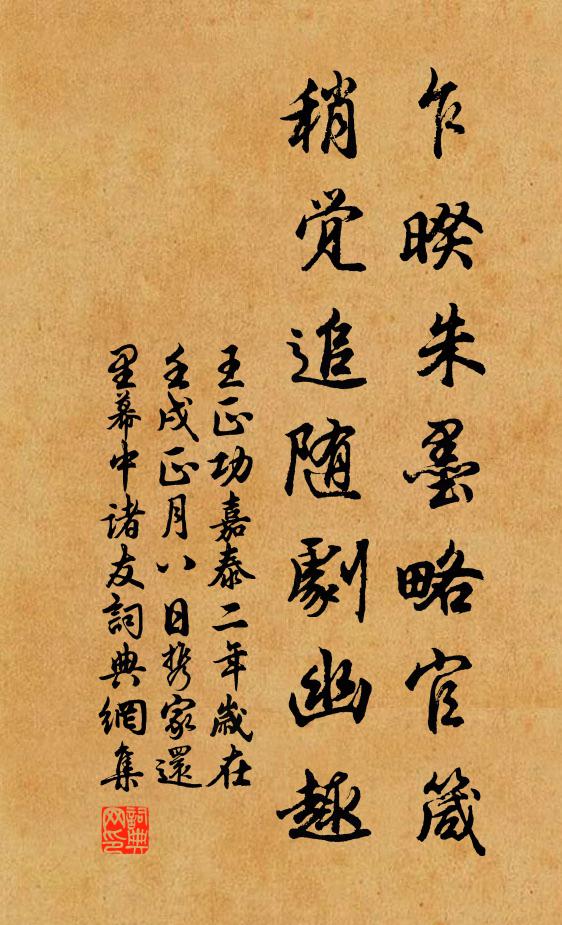 乍暌朱墨略官箴
稍觉追随剧幽趣
王正功嘉泰二年岁在
壬戌正月八日携家还
里幕中诸友词典網集
詞典网印